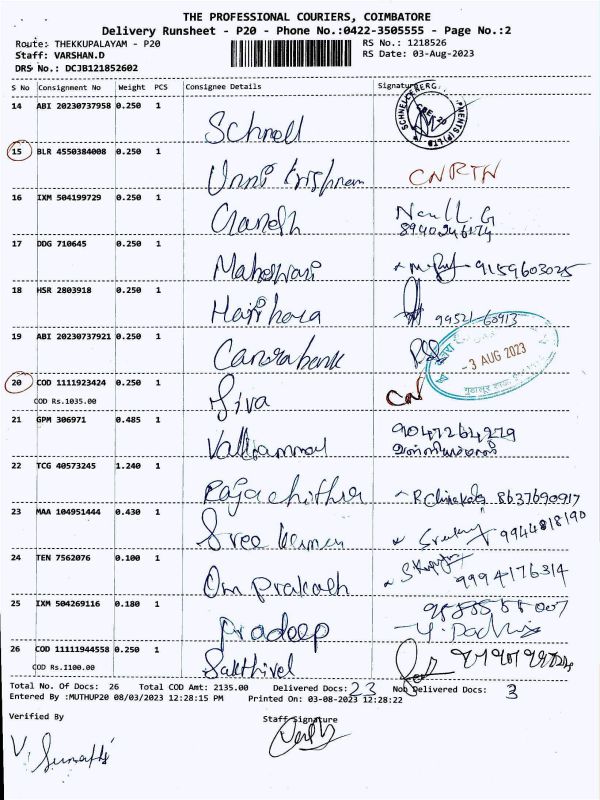 THE PROFESSIONAL COURIERS, COIMBATORE
Delivery Runsheet - P20 - Phone No.:0422-3505555 - Page No.:2
Route: THEKKUPALAYAM - P20 RS No.: 1218526
Staff: VARSHAN.D RS Date: 03-Aug-2023
DRS No.: DCJB121852602
S No Consignment No Weight PCS Consignee Details Signature
14 ABI 20230737958 0.250 1 Schnell
15 BLR 4550384008 0.250 1 Unni Krishnan CNRTN
16 IXM 504199729 0.250 1 Ganesh
17 DDG 710645 0.250 1 Maheswari 9159603025
18 HSR 2803918 0.250 1 Harihara 99521-60913
19 ABI 20230737921 0.250 1 Canarabank
-3 AUG 2023
20 COD 1111923424 0.250 1 Siva CN
COD Rs.1035.00
21 GPM 306971 0.485 1 Valliammal 9047264279
வள்ளியம்மாள்
22 TCG 40573245 1.240 1 Raja chithra 8637690917
23 MAA 104951444 0.430 1 Sree 9944818190
24 TEN 7562076 0.100 1 Om prakash 9994176314
25 IXM 504269116 0.180 1 Pradeep
26 COD 11111944558 0.250 1 Sakthivel
COD Rs.1100.00
Total No. Of Docs: 26 Total COD Amt: 2135.00 Delivered Docs: 23 Non Delivered Docs: 3
Entered By :MUTHUP20 08/03/2023 12:28:15 PM Printed On: 03-08-2023 12:28:22
Verified By Staff Signature
V. Sumathi